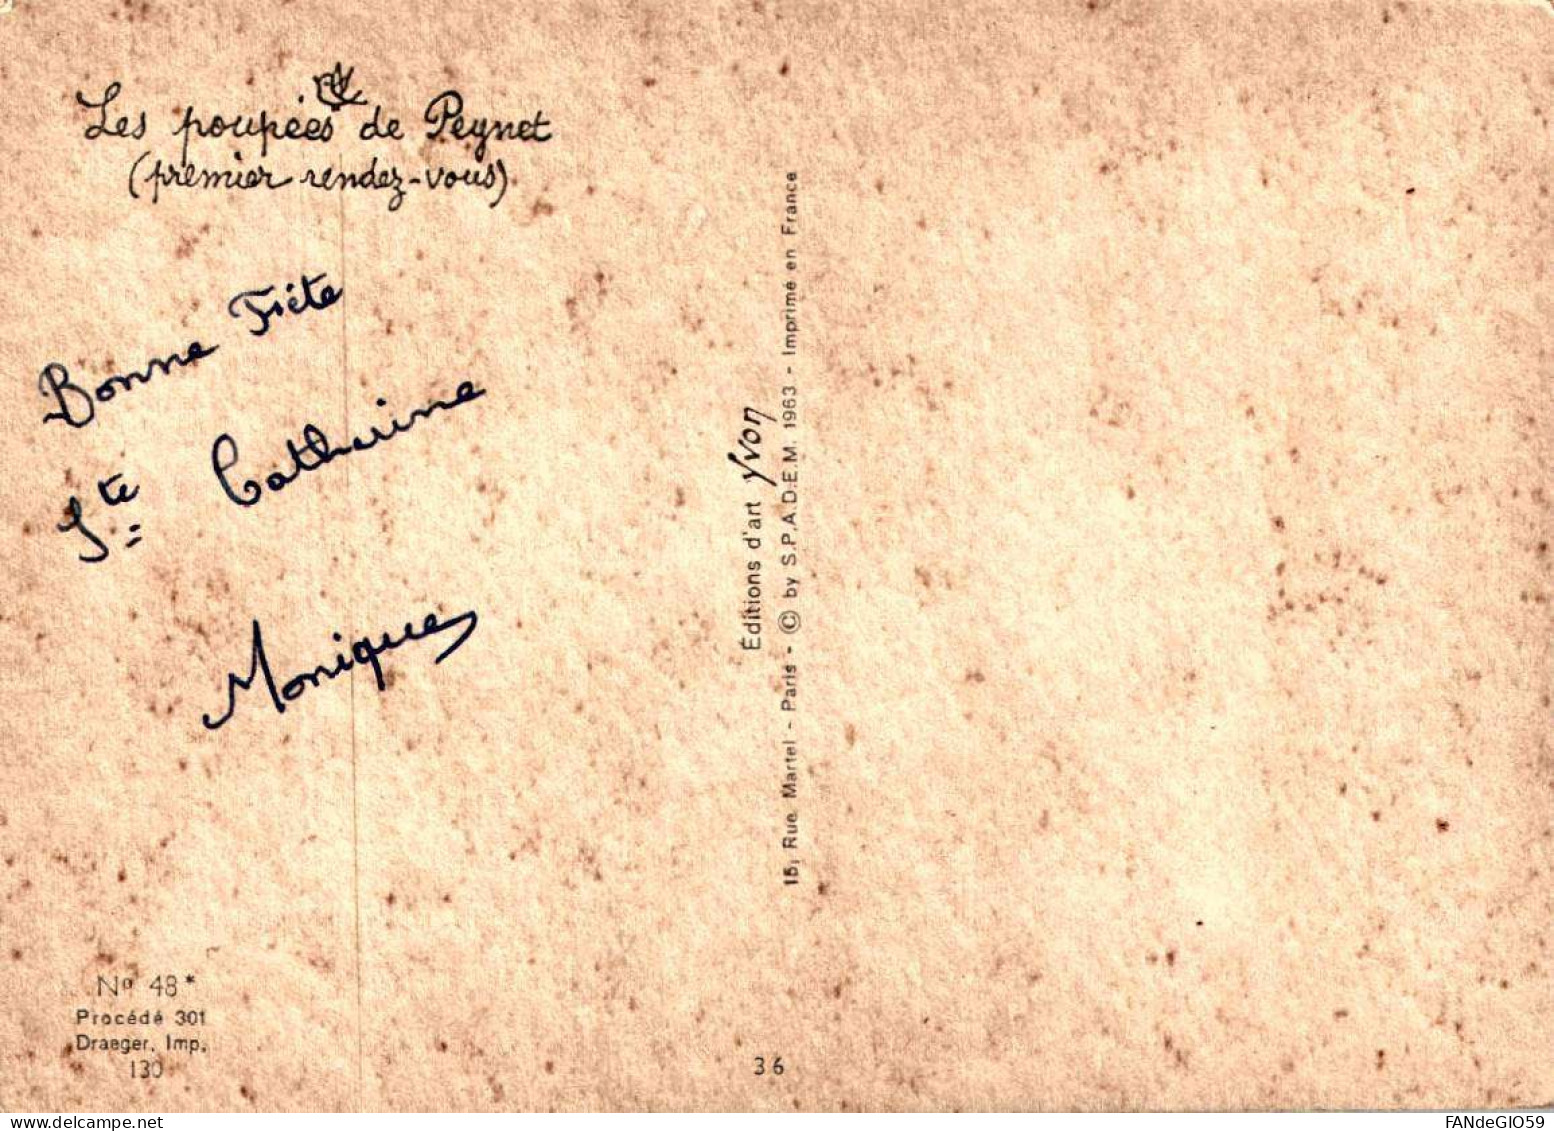 Les poupées de Peynet
(premier rendez-vous)
Bonne Fête
Ste Catherine
Monique
Éditions d'art yvon
15, Rue Martel - Paris - © by S.P.A.D.E.M. 1963 - Imprimé en France
Nº 48*
Procédé 301
Draeger, Imp.
130
36
delcampe.net
FANdeGIO59